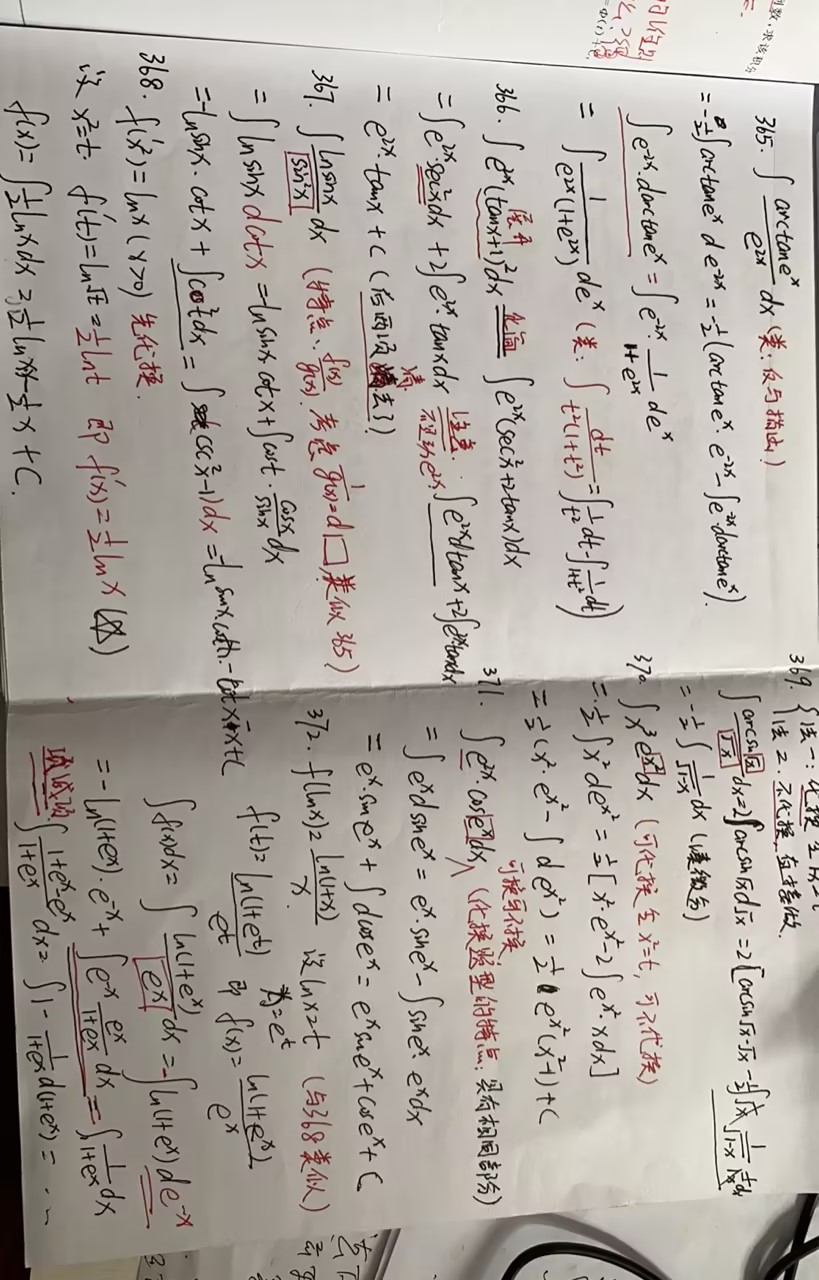 365. ∫ arctane^x / e^{2x} dx (类: 反与指出)
= -½∫arctane^x de^{-2x} = -½(arctane^x·e^{-2x} - ∫e^{-2x}·darctane^x).
∫e^{-2x}·darctane^x = ∫e^{-2x}·1/(1+e^{2x}) de^x
= ∫ 1/(e^{2x}(1+e^{2x})) de^x (类: ∫ dt/(t²(1+t²)) = ∫1/t² dt - ∫1/(1+t²) dt)
366. ∫e^{2x}(tanx+1)²dx ∫e^{2x}(sec²x+2tanx)dx
= ∫e^{2x}sec²xdx + 2∫e^{2x}·tanxdx 注意: 不要动e^{2x}. ∫e^{2x}dtanx+2∫e^{2x}tanxdx
= e^{2x}·tanx + C (后两项消去了)
367. ∫ lnsinx / sin²x dx (特点: f(x)/g(x) 考点 1/g(x)=d□, 类似365)
= ∫lnsinxdcotx = -lnsinxcotx + ∫cotx·cosx/sinx dx
= -lnsinx·cotx + ∫cot²xdx = ∫(csc²x-1)dx = -lnsinx·cotx - cotx - x + C
368. f′(x²) = lnx (x>0) 先代换.
设 x²=t. f′(t)=ln√t = ½lnt 即 f′(x)=½lnx
f(x) = ∫½lnxdx = ½lnx·x - ½x + C.
369. { 法一: 代换 全√x=t
法2. 不代换, 直接做.
∫ arcsin√x / √x dx = 2∫arcsin√xd√x = 2[arcsin√x·√x - ½∫√x 1/√(1-x) 1/√x dx
= -½∫ 1/√(1-x) dx (凑微分)
370. ∫x³e^{x²}dx (可代换全x²=t, 可不代换)
= ½∫x²de^{x²} = ½[x²e^{x²} - 2∫e^{x²}·xdx]
= ½(x²·e^{x²} - ∫de^{x²}) = ½e^{x²}(x²-1)+C
371. ∫e^{2x}·cose^xdx 可换可不换 (代换题型的特点: 具有相同部分)
= ∫e^xdsine^x = e^x·sine^x - ∫sine^x·e^xdx
= e^x·sine^x + ∫dcose^x = e^xsine^x + cose^x + C
372. f(lnx) = ln(1+x)/x. 设lnx=t (与368类似)
f(t) = ln(1+e^t)/e^t x=e^t 即 f(x) = ln(1+e^x)/e^x
∫f(x)dx = ∫ ln(1+e^x)/e^x dx = -∫ln(1+e^x)de^{-x}
= -ln(1+e^x)·e^{-x} + ∫e^{-x} e^x/(1+e^x) dx = ∫ 1/(1+e^x) dx
∫ (1+e^x-e^x)/(1+e^x) dx = ∫1 - 1/(1+e^x) d(1+e^x) = …